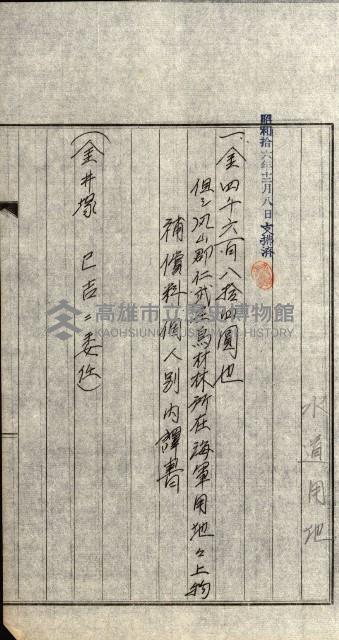 昭和拾六年十二月八日支拂済
水道用地
一、金四千六百八拾四圓也
但シ鳳山郡仁武庄烏材林所在海軍用地々上物
補償料個人別内譯書
(金井塚 巳吉ニ委任)
高雄市立歷史博物館
KAOHSIUNG MUSEUM OF HISTORY